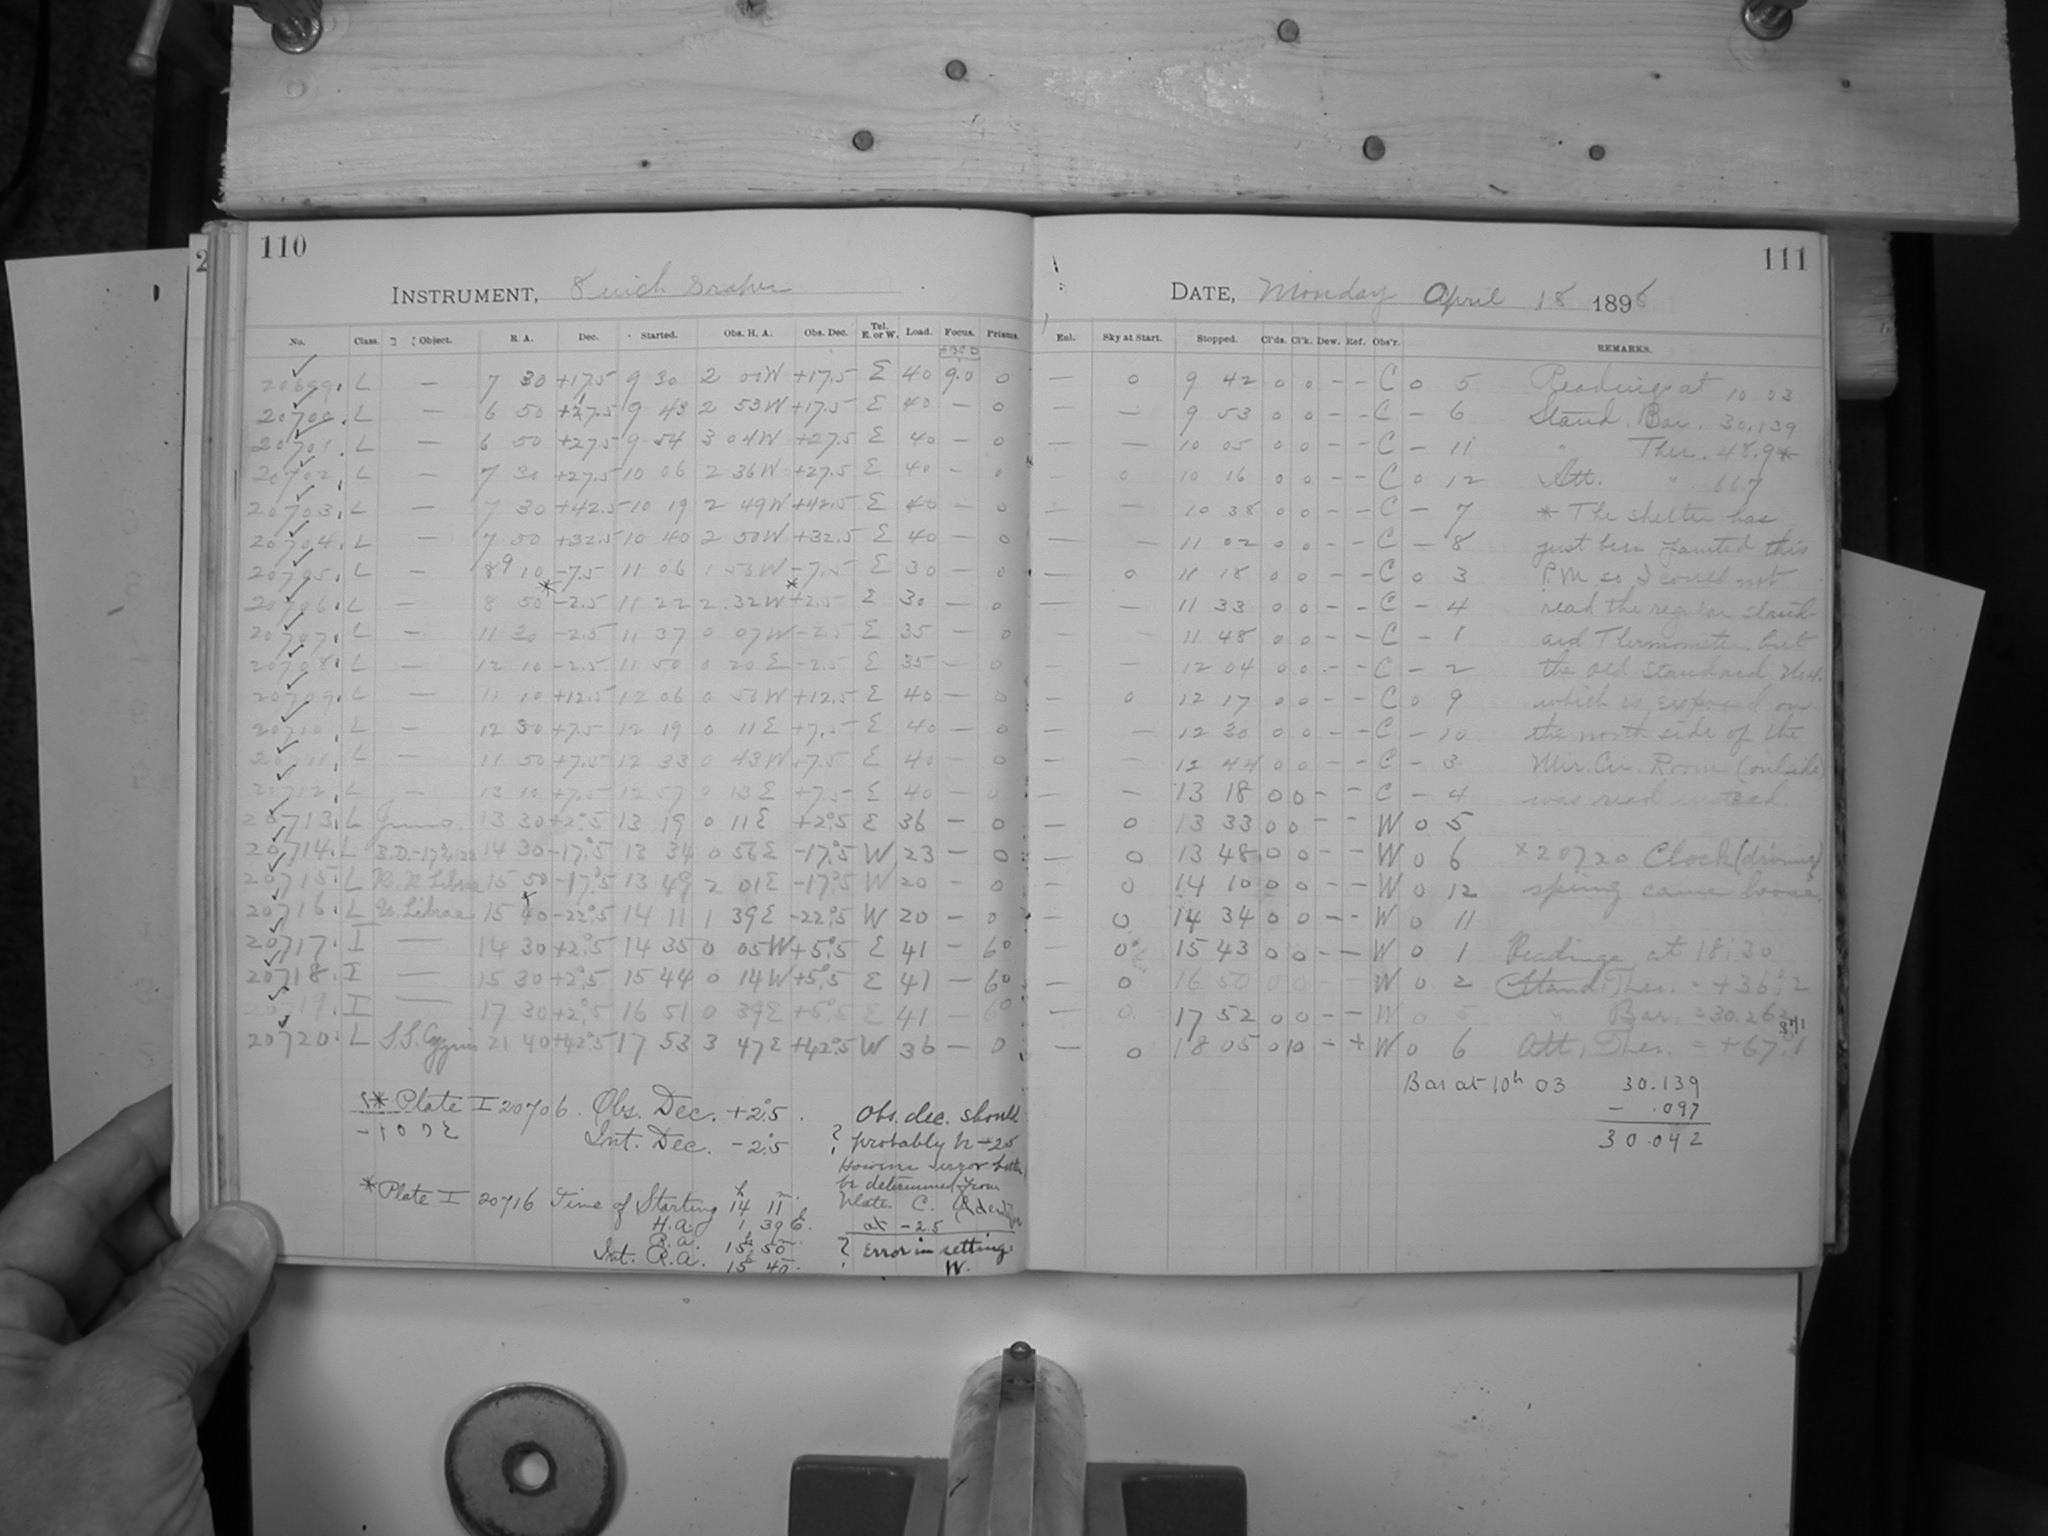 110
INSTRUMENT, 8 inch Draper
No. Class. Object. R. A. Dec. Started. Obs. H. A. Obs. Dec. Tel. E. or W. Load. Focus. Prisms.
20699. L — 7 30 +17.5 9 30 2 00W +17.5 E 40 9.0 0
20700. L — 6 50 +27.5 9 43 2 53W +17.5 E 40 — 0
20701. L — 6 50 +27.5 9 54 3 04W +27.5 E 40 — 0
20702. L — 7 30 +27.5 10 06 2 36W +27.5 E 40 — 0
20703. L — 7 30 +42.5 10 19 2 49W +42.5 E 40 — 0
20704. L — 7 50 +32.5 10 40 2 50W +32.5 E 40 — 0
20705. L — 9 10 -7.5 11 06 1 56W -7.5 E 30 — 0
20706. L — 8 50* -2.5 11 22 2 32W *+2.5 E 30 — 0
20707. L — 11 30 -2.5 11 37 0 07W -2.5 E 35 — 0
20708. L — 12 10 -2.5 11 50 0 20E -2.5 E 35 — 0
20709. L — 11 10 +12.5 12 06 0 56W +12.5 E 40 — 0
20710. L — 12 30 +7.5 12 19 0 11E +7.5 E 40 — 0
20711. L — 11 50 +7.5 12 33 0 43W +7.5 E 40 — 0
20712. L — 13 10 +7.5 12 57 0 13E +7.5 E 40 — 0
20713. L Juno. 13 30 +2°.5 13 19 0 11E +2°.5 E 36 — 0
20714. L 14 30 -17°.5 13 34 0 56E -17°.5 W 23 — 0
20715. L R. R. Librae 15 50 -17°.5 13 49 2 01E -17°.5 W 20 — 0
20716. L U. Librae 15 40 -22°.5 14 11 1 39E -22°.5 W 20 — 0
20717. I — 14 30 +2°.5 14 35 0 05W +5°.5 E 41 — 60
20718. I — 15 30 +2°.5 15 44 0 14W +5°.5 E 41 — 60
20719. I — 17 30 +2°.5 16 51 0 39E +5°.5 E 41 — 60
20720. L S.S. Cygni 21 40 +42°.5 17 53 3 47E +42°.5 W 36 — 0
* Plate I 20706. Obs. Dec. +2°.5.
Int. Dec. -2°.5
? Obs. dec. should
probably be +2.5
However error better
be determined from
plate. C.
at -2.5
*Plate I 20716 Time of Starting 14h 11m.
H.A. 1 39 E.
R.A. 15h 50m.
Int. R.A. 15h 40m.
? Error in setting.
W.
111
DATE, Monday April 18 1898
Enl. Sky at Start. Stopped. Cl'ds. Cl'k. Dew. Ref. Obs'r. REMARKS.
— 0 9 42 0 0 - - C 0 5 Readings at 10 03
— — 9 53 0 0 - - C — 6 Stand. Bar. 30.139
— — 10 05 0 0 - - C — 11 " Ther. 48.9*
— 0 10 16 0 0 - - C 0 12 Att. " 66.7
— — 10 38 0 0 - - C — 7 * The shelter has
— — 11 02 0 0 - - C — 8 just been painted this
— 0 11 18 0 0 - - C 0 3 P.M. so I could not
— — 11 33 0 0 - - C — 4 read the regular stand-
— — 11 48 0 0 - - C — 1 ard Thermometer but
— — 12 04 0 0 - - C — 2 the old standard
— 0 12 17 0 0 - - C 0 9 which is exposed on
— — 12 30 0 0 - - C — 10 the north side of the
— — 12 44 0 0 - - C — 3 Mer. Cir. Room (outside)
— — 13 18 0 0 - - C — 4 was read instead.
— 0 13 33 0 0 - - W 0 5
— 0 13 48 0 0 - - W 0 6 × 20720 Clock (driving)
— 0 14 10 0 0 - - W 0 12 spring came loose.
— 0 14 34 0 0 - - W 0 11
— 0 15 43 0 0 - - W 0 1 Readings at 18:30
— 0 16 50 0 0 - - W 0 2 Stand. Ther. = +36°.2
— 0 17 52 0 0 - - W 0 5 " Bar. = 30.262
— 0 18 05 0 10 - + W 0 6 Att. Ther. = +67.1
Bar at 10h 03 30.139
- .097
30.042